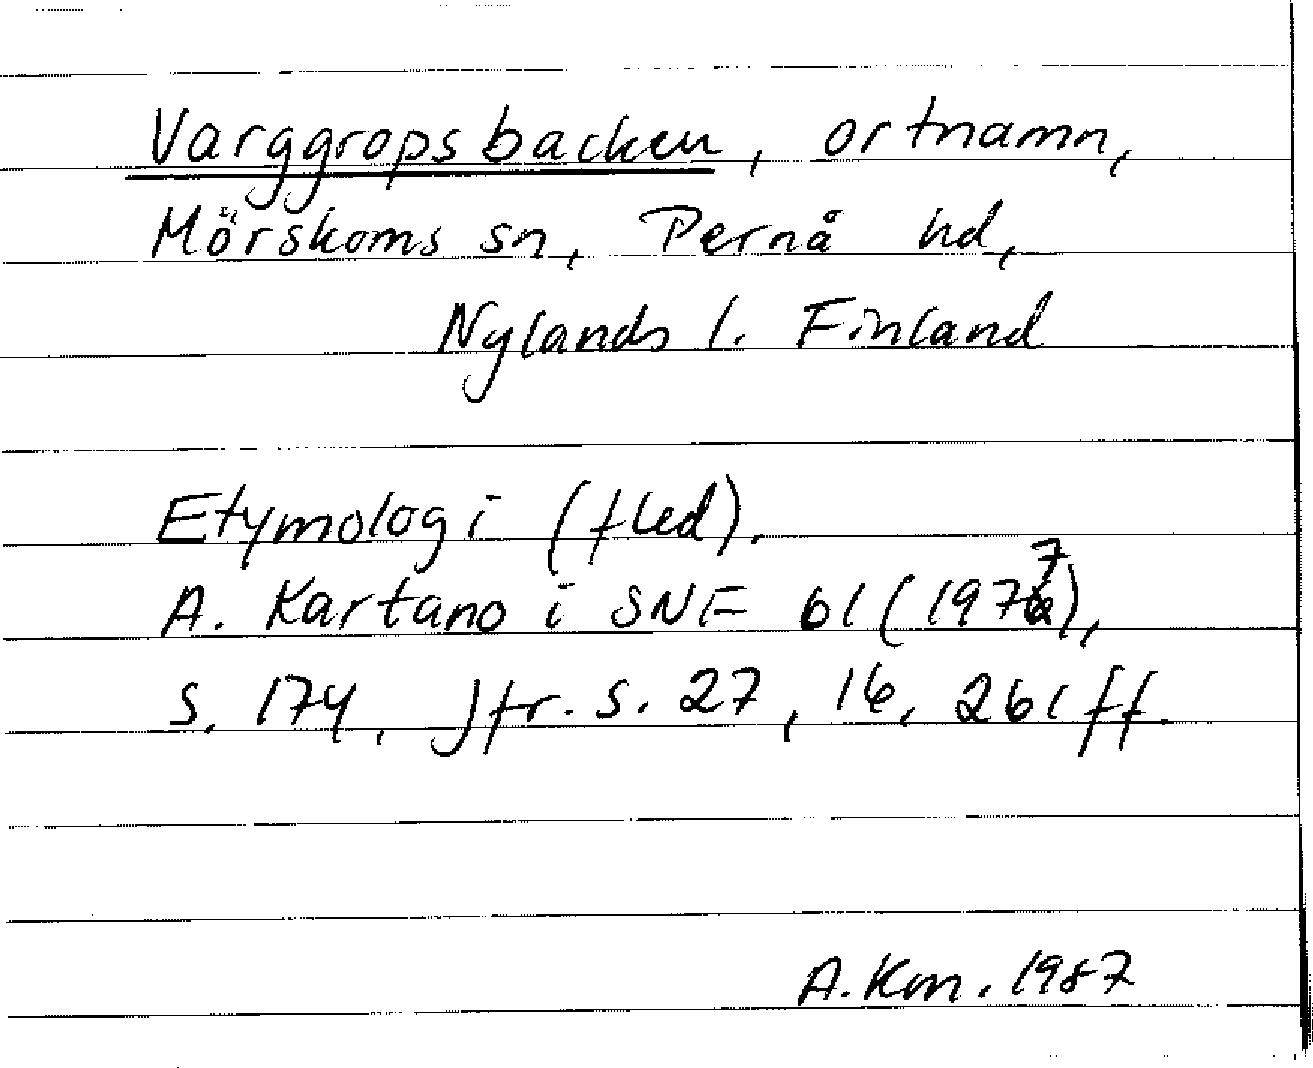 Varggropsbacken, ortnamn,
Mörskoms sn, Pernå hd,
Nylands l. Finland
Etymologi (fled).
A. Kartano i SNF 61 (1977),
s. 174, jfr. s. 27, 16, 261 ff.
A.Km. 1987